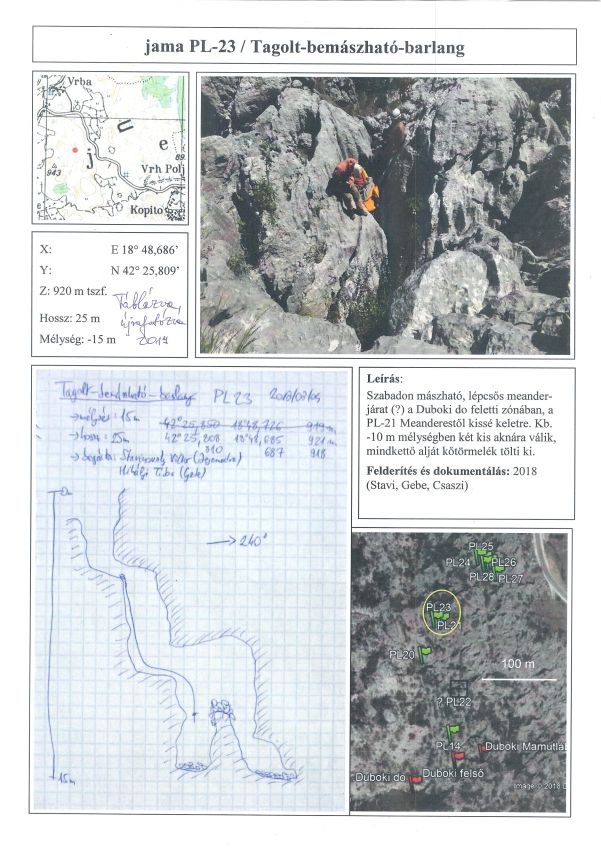 jama PL-23 / Tagolt-bemászható-barlang
Vrba
u
j
e
89
943
Vrh Polj
Kopito
X: E 18° 48,686'
Y: N 42° 25,809'
Z: 920 m tszf.
Hossz: 25 m
Mélység: -15 m
Táblázva,
újrafotózva
2019
Tagolt-bemászható-barlang PL23
→ mélység: 15m 42°25,850 18°48,726 919m
→ hossz: 25m 42°25,808 18°48,685 921m
810 687 918
→ bejárta:
(Gebe)
0m
→ 240°
15m
Leírás:
Szabadon mászható, lépcsős meander-
járat (?) a Duboki do feletti zónában, a
PL-21 Meanderestől kissé keletre. Kb.
-10 m mélységben két kis aknára válik,
mindkettő alját kőtörmelék tölti ki.
Felderítés és dokumentálás: 2018
(Stavi, Gebe, Csaszi)
PL25
PL24 PL26
PL28 PL27
PL23
PL21
PL20
100 m
? PL22
PL14
Duboki Mamutláb
Duboki do Duboki felső
Image © 2018 D